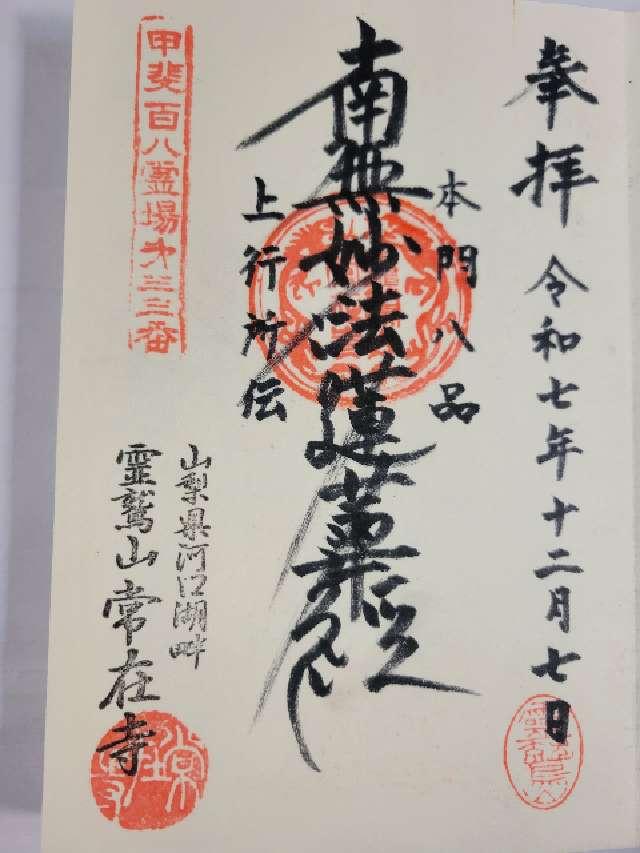 奉拝 令和七年十二月七日
本門八品
南無妙法蓮華経
上行所伝
甲斐百八霊場第三三番
山梨県河口湖畔
霊鷲山常在寺
常在寺